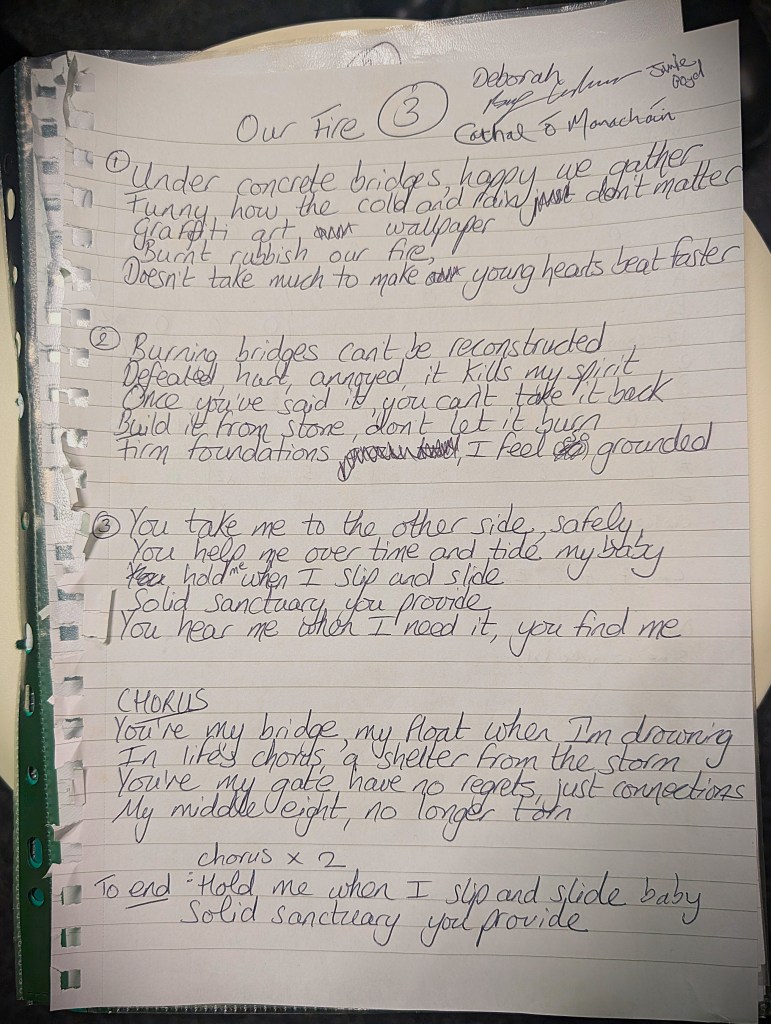 Deborah
Junie
Boyd
Our Fire 3
Cathal Ó Manacháin
1 Under concrete bridges, happy we gather
Funny how the cold and rain just don't matter
Graffiti art wallpaper
Burnt rubbish our fire,
Doesn't take much to make young hearts beat faster
2 Burning bridges can't be reconstructed
Defeated, hurt, annoyed, it kills my spirit
Once you've said it, you can't take it back
Build it from stone, don't let it burn
Firm foundations, I feel grounded
3 You take me to the other side, safely,
You help me over time and tide my baby
You hold me when I slip and slide
Solid sanctuary you provide
You hear me when I need it, you find me
CHORUS
You're my bridge, my float when I'm drowning
In life's chords, a shelter from the storm
You're my gate have no regrets, just connections
My middle eight, no longer torn
chorus x 2
To end : Hold me when I slip and slide baby
Solid sanctuary you provide